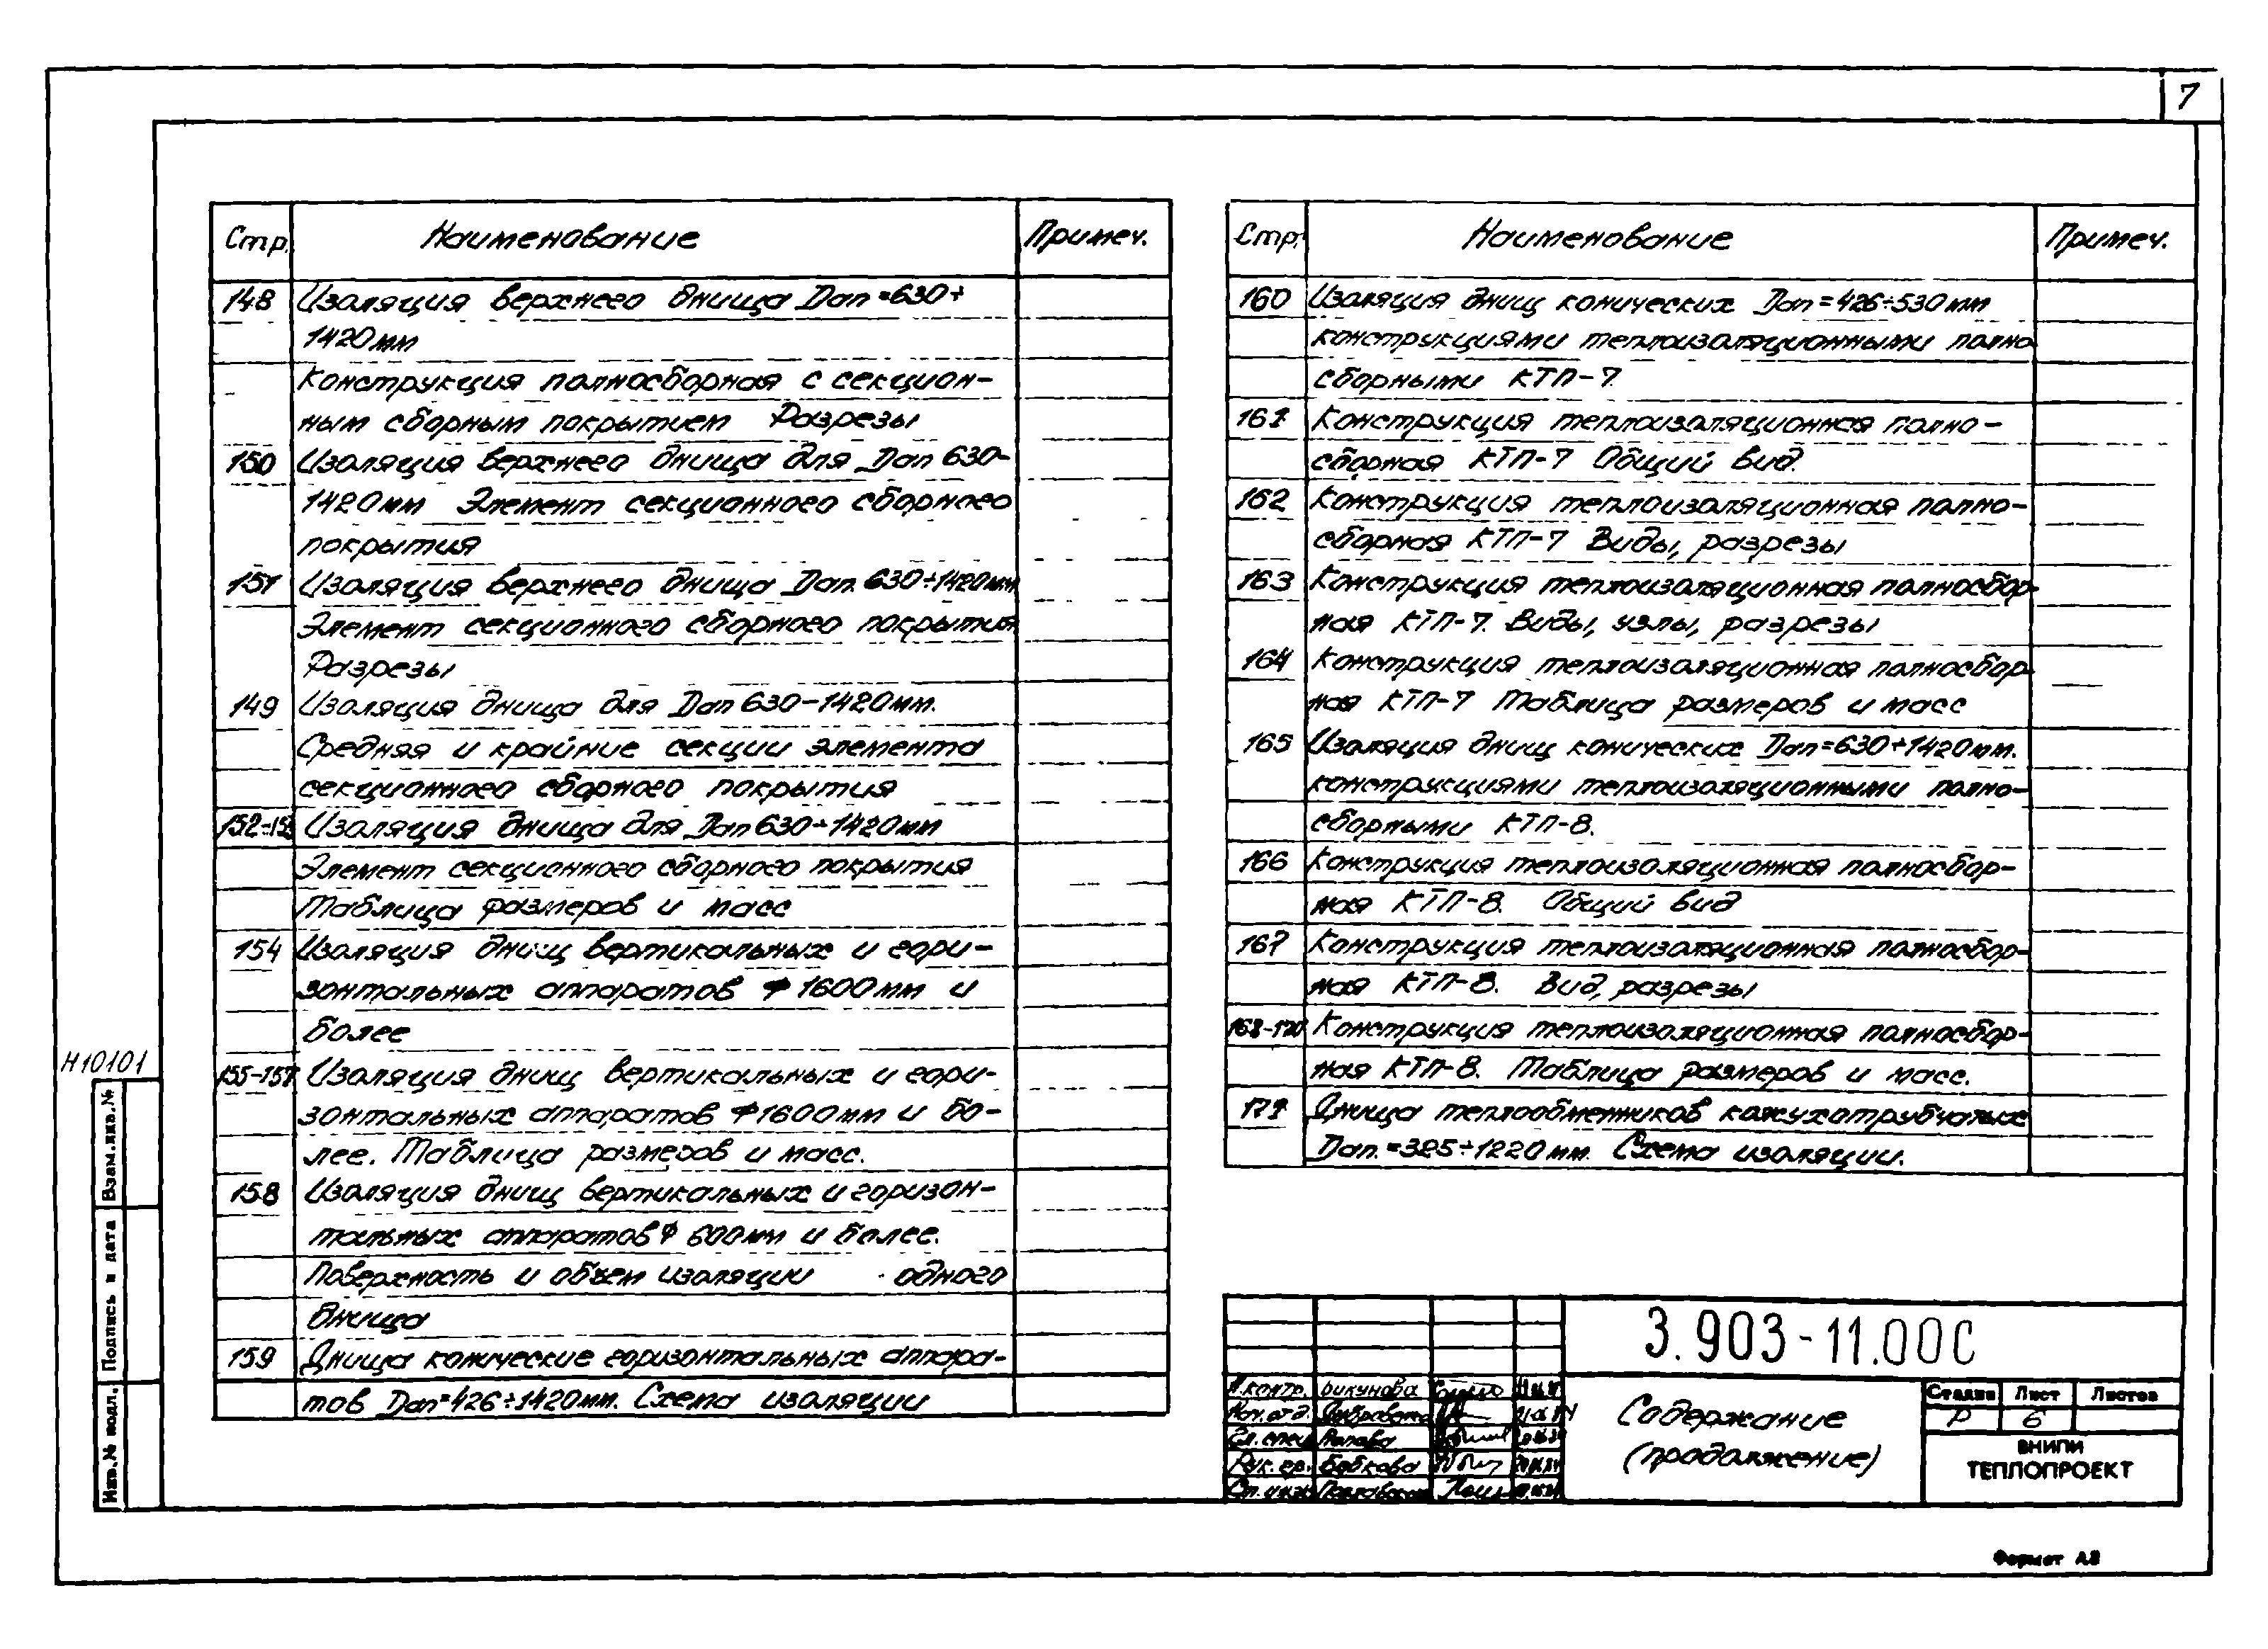 7
Стр. Наименование Примеч.
148 Изоляция верхнего днища Dап=630÷
1420мм
Конструкция полносборная с секцион-
ным сборным покрытием Разрезы
150 Изоляция верхнего днища для Dап 630-
1420мм Элемент секционного сборного
покрытия
151 Изоляция верхнего днища Dап. 630÷1420мм
Элемент секционного сборного покрытия
Разрезы
149 Изоляция днища для Dап 630-1420мм.
Средняя и крайние секции элемента
секционного сборного покрытия
Изоляция днища для Dап 630÷1420мм
Элемент секционного сборного покрытия
Таблица размеров и масс
154 Изоляция днищ вертикальных и гори-
зонтальных аппаратов ф 1600мм и
более
155-157 Изоляция днищ вертикальных и гори-
зонтальных аппаратов ф1600мм и бо-
лее. Таблица размеров и масс.
158 Изоляция днищ вертикальных и горизон-
тальных аппаратов ф 600мм и более.
Поверхность и объем изоляции одного
днища
159 Днища конические горизонтальных аппара-
тов Dап=426÷1420мм. Схема изоляции
Стр. Наименование Примеч.
160 Изоляция днищ конических Dап=426÷530мм
конструкциями теплоизоляционными полно
сборными КТП-7.
161 Конструкция теплоизоляционная полно-
сборная КТП-7 Общий вид.
162 Конструкция теплоизоляционная полно-
сборная КТП-7 Виды, разрезы
163 Конструкция теплоизоляционная полносбор-
ная КТП-7. Виды, узлы, разрезы
164 Конструкция теплоизоляционная полносбор-
ная КТП-7 Таблица размеров и масс
165 Изоляция днищ конических Dап=630÷1420мм.
конструкциями теплоизоляционными полно-
сборными КТП-8.
166 Конструкция теплоизоляционная полносбор-
ная КТП-8. Общий вид
167 Конструкция теплоизоляционная полносбор-
ная КТП-8. Вид, разрезы
168-170 Конструкция теплоизоляционная полносбор-
ная КТП-8. Таблица размеров и масс.
171 Днища теплообменников кожухотрубчатых
Dап.=325÷1220мм. Схема изоляции.
Н10101
Взам.инв.№
Подпись и дата
Инв.№ подл.
3.903-11.00С
Н.контр. Бикунова
Нач.отд.
Гл.спец. Попова
Рук.гр. Бобкова
Ст.инж.
Содержание
(продолжение)
Стадия Лист Листов
Р 6
ВНИПИ
ТЕПЛОПРОЕКТ
Формат А3